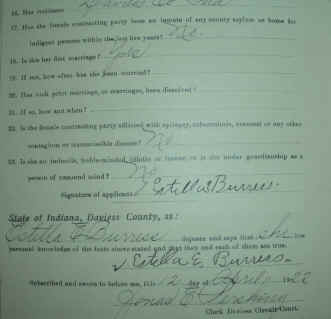 16. Her residence Daviess Co Ind
17. Has the female contracting party been an inmate of any county asylum or home for
indigent persons within the last five years? No
18. Is this her first marriage? Yes
19. If not, how often has she been married?
20. Has such prior marriage, or marriages, been dissolved?
21. If so, how and when?
22. Is the female contracting party afflicted with epilepsy, tuberculosis, venereal or any other
contagious or transmissible disease? No
23. Is she an imbecile, feeble-minded, idiotic or insane, or is she under guardianship as a
person of unsound mind? No
Signature of applicant Estella E Burress.
State of Indiana, Daviess County, ss:
Estella E Burress deposes and says that she has
personal knowledge of the facts above stated and that they and each of them are true.
Estella E. Burress.
Subscribed and sworn to before me, this 12 day of April, 1922
Clerk Daviess Circuit Court.